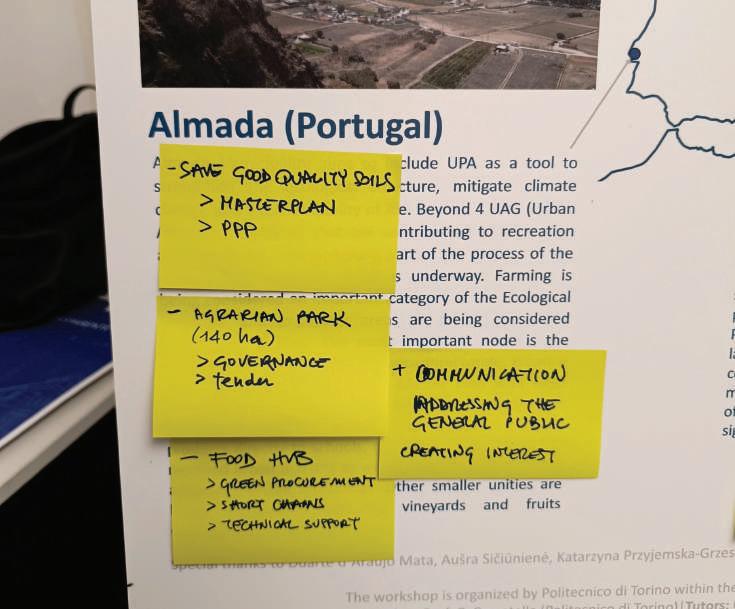 Almada (Portugal)
- SAVE GOOD QUALITY SOILS
> MASTERPLAN
> PPP
clude UPA as a tool to
cture, mitigate climate
e. Beyond 4 UAG (Urban
ntributing to recreation
art of the process of the
s underway. Farming is
an important category of the Ecological
s are being considered
t important node is the
- AGRARIAN PARK
(140 ha)
> GOVERNANCE
> tender
+ COMMUNICATION
ADDRESSING THE
GENERAL PUBLIC
CREATING INTEREST
- FOOD HUB
> GREEN PROCUREMENT
> SHORT CHAINS
> TECHNICAL SUPPORT
ther smaller unities are
vineyards and fruits
special thanks to Duarte d'Araújo Mata, Aušra Sičiūnienė, Katarzyna Przyjemska-Grzes
The workshop is organized by Politecnico di Torino within the
(Politecnico di Torino) Tutors: